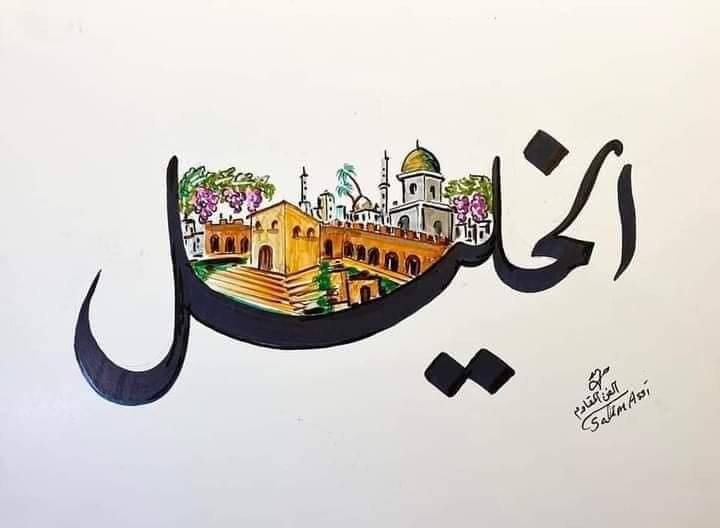 الخليل
الفن المقاوم
Salem Assi